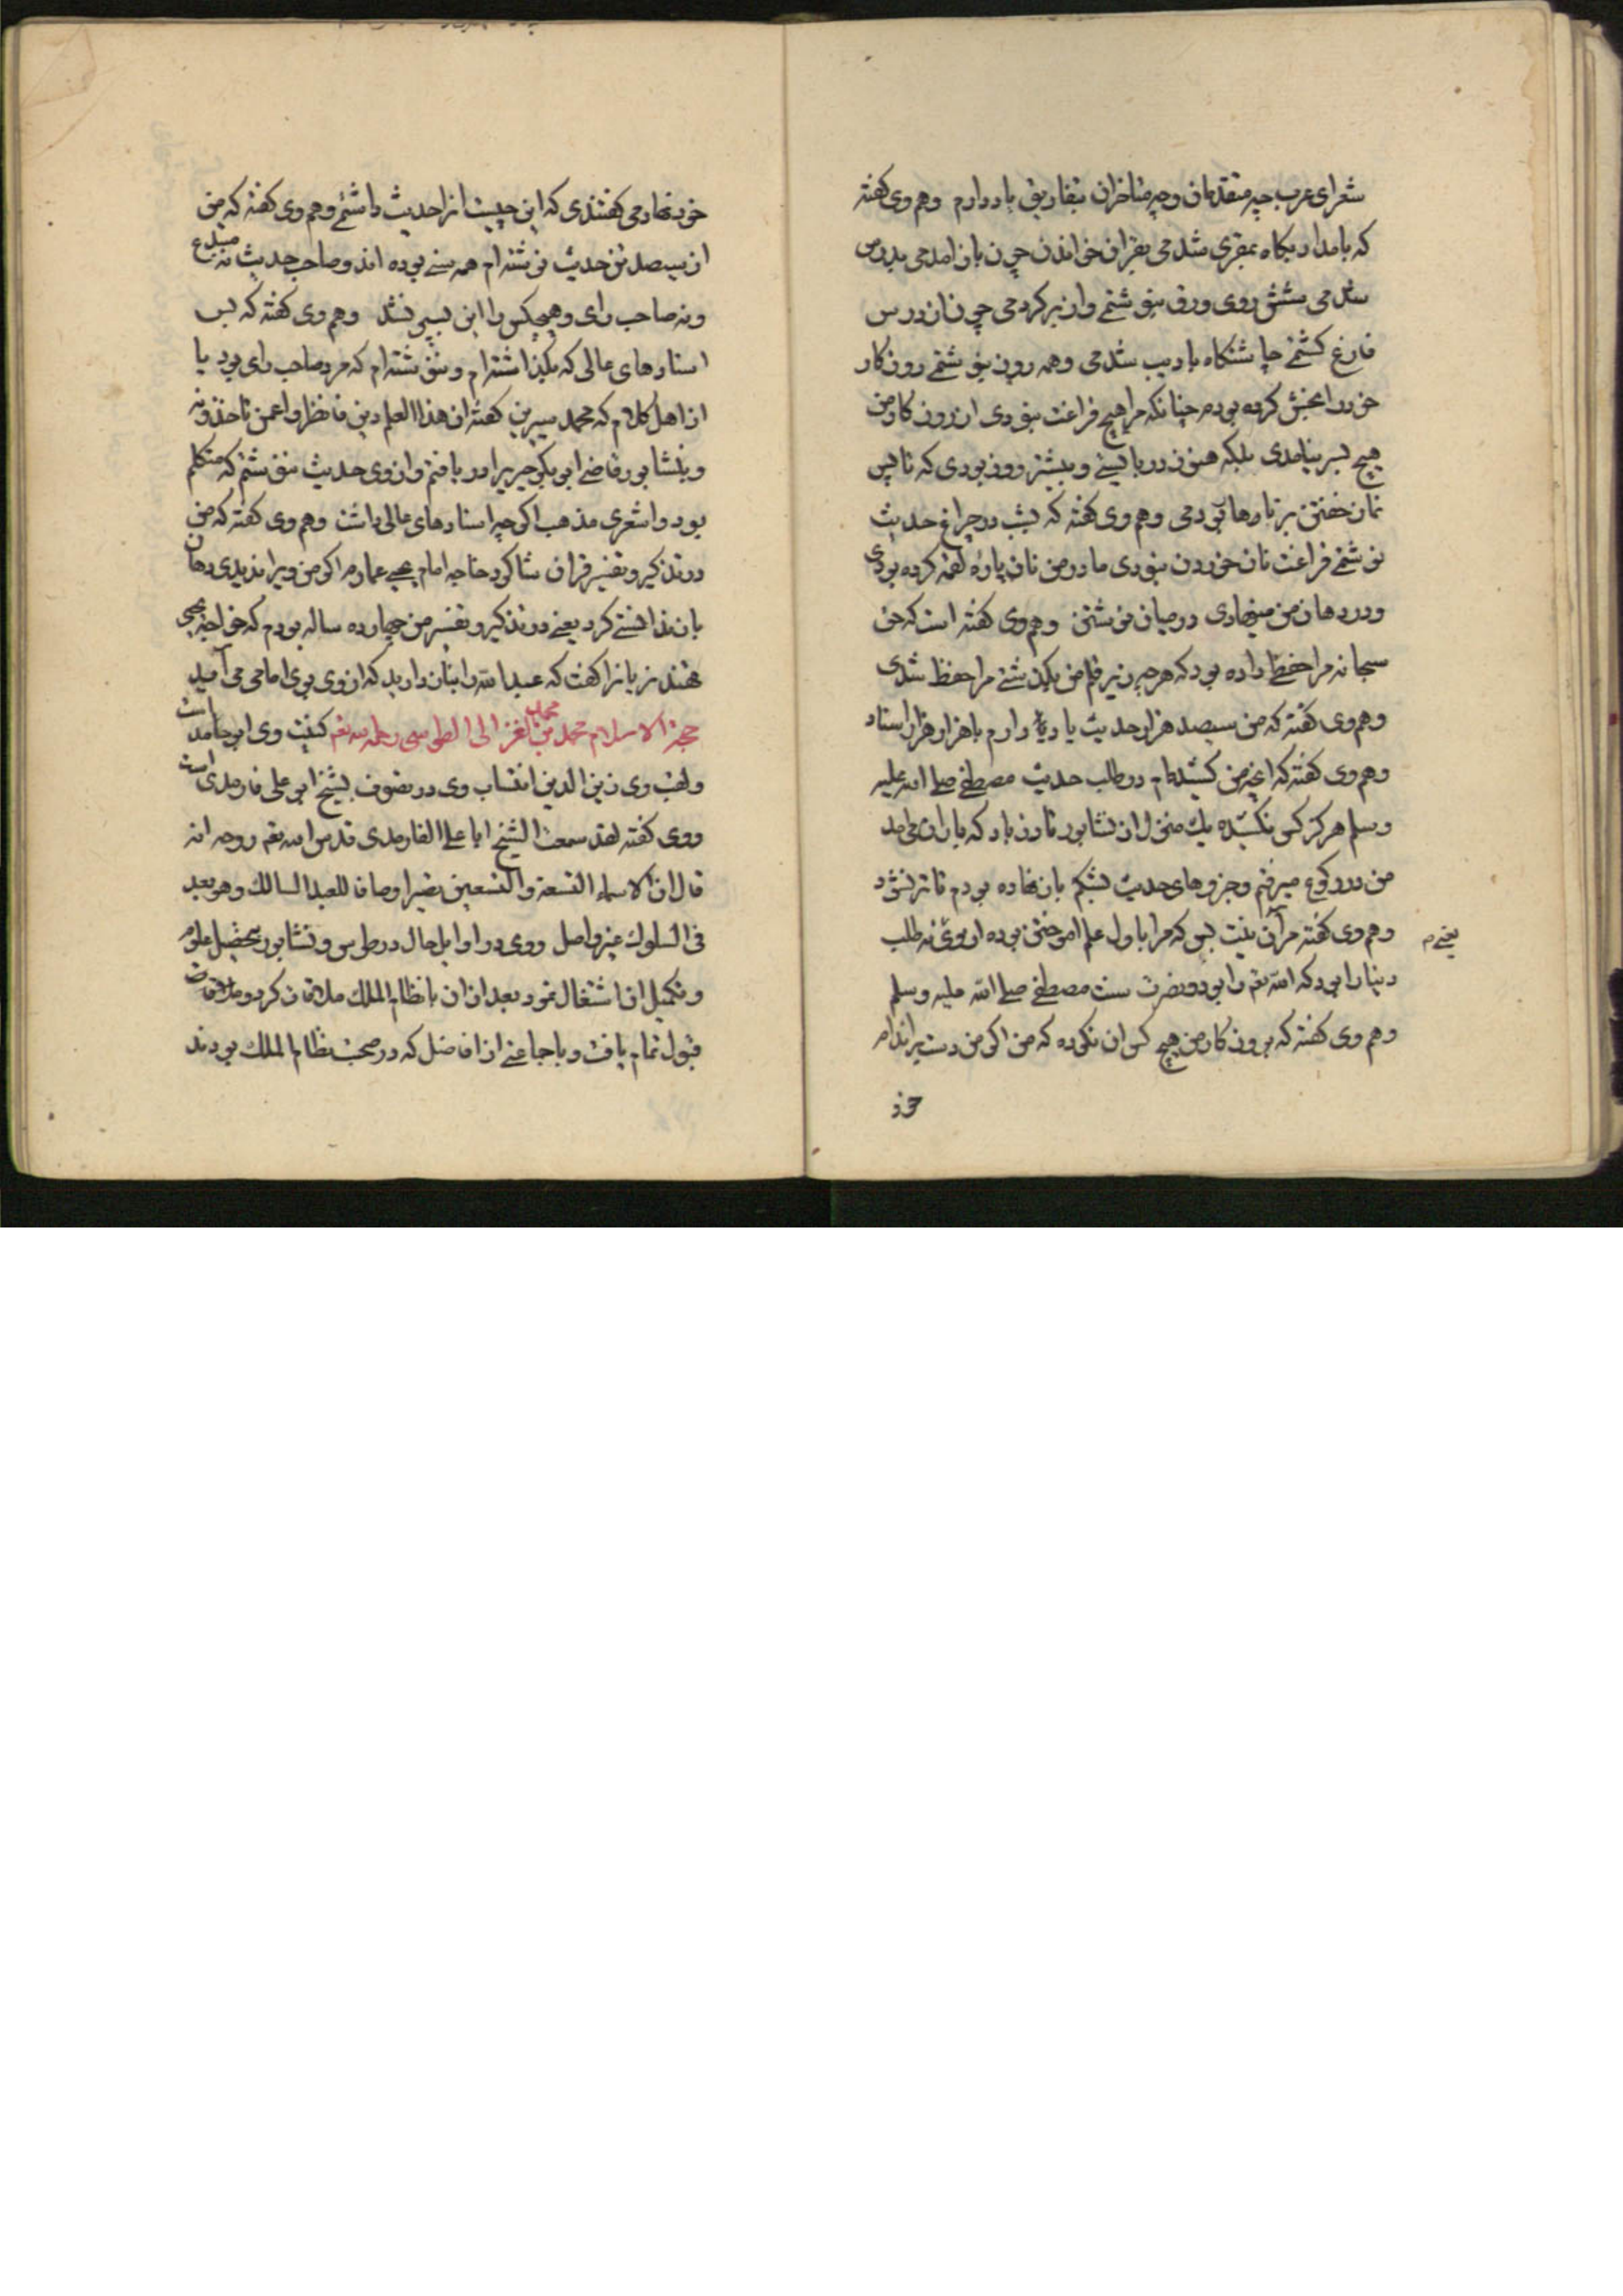 شعرای عرب چه متقدمان و چه متاخران بتفاریق یاد دارم وهم وی کفته
که بامداد پکاه بمقری شدمی بقران خواندن چون باز امدمی بدرس
شدمی شش روی ورق بنوشتمی و از بر کردمی چون از درس
فارغ کشتمی چاشتکاه بادیب شدمی و همه روز بنوشتمی روزکار
خود را بخش کرده بودم چنانکه مرا هیچ فراغت نبودی از روزکار من
هیچ بسر نیامدی بلکه هنوز دربایستی و بیشتر روز بودی که تا پس
نماز خفتن بر نارها بودمی وهم وی کفته که بشب در چراغ حدیث
نوشتمی فراغت نان خوردن نبودی مادر من نان پاره لقمه کرده بودی
و در دهان من مینهادی در میان نوشتن وهم وی کفته است که حق
سبحانه مرا حفظی داده بود که هر چه زیر قلم من بکذشتی مرا حفظ شدی
وهم وی کفته که من سیصد هزار حدیث یاد دارم با هزار هزار اسناد
وهم وی کفته که انچه من کشیده‌ام در طلب حدیث مصطفی صلی الله علیه
وسلم هرکز کس نکشیده یک منزل از نشابور تا زرباد که باران می امد
من در رکوع میرفتم و جزوهای حدیث بشکم باز نهاده بودم تا تر نشود
وهم وی کفته مر آن نیت بس که مرا باول علم اموختن بوده از بوی نه طلب
یعنی م
دنیا را بود که الله تعم را بود و نصرت سنت مصطفی صلی الله علیه وسلم
وهم وی کفته که بروزکار من هیچ کس ان نکرده که من اکر من دست بر اندام
خود
خود نهادمی کفتندی که این چیست انرا حدیث داشتمی وهم وی کفته که من
از سیصد تن حدیث نوشته‌ام همه سنی بوده اند و صاحب حدیث نه مبتدع
و نه صاحب رای و هیچکس را این بسر نشد وهم وی کفته که بس
اسنادهای عالی که بکذاشته‌ام و ننوشته‌ام که مرد صاحب رای بود یا
از اهل کلام که محمد سیرین کفته ان هذا العلم دین فانظروا عمن تاخذونه
و بنشابور قاضی ابو بکر حیری را دریافتم و از وی حدیث ننوشتم که متکلم
بود و اشعری مذهب اکر چه اسنادهای عالی داشت وهم وی کفته که من
در تذکیر و تفسیر قران شاکرد خواجه امام یحیی عمارم اکر من ویرا ندیدی دهان
باز ندانستی کرد یعنی در تذکیر و تفسیر من چهارده ساله بودم که خواجه یحیی
قهندزیانرا کفت که عبد الله را بناز دارید که از وی بوی امامی می آید
حجة الاسلام محمد بن محمد الغزالی الطوسی رحمه الله تعم کنیت وی ابو حامد است
و لقب وی زین الدین انتساب وی در تصوف بشیخ ابو علی فارمدی است
و وی کفته لقد سمعت الشیخ ابا علی الفارمدی قدس الله تعم روحه انه
قال ان الاسماء التسعة والتسعین تصیر اوصافا للعبد السالک وهو بعد
فی السلوک غیر واصل و وی در اوایل حال در طوس و نشابور بتحصیل علوم
و تکمیل ان اشتغال نمود بعد از ان با نظام الملک ملاقات کرد و ملاقات
قبول تمام یافت و با جماعتی از افاضل که در صحبت نظام الملک بودند